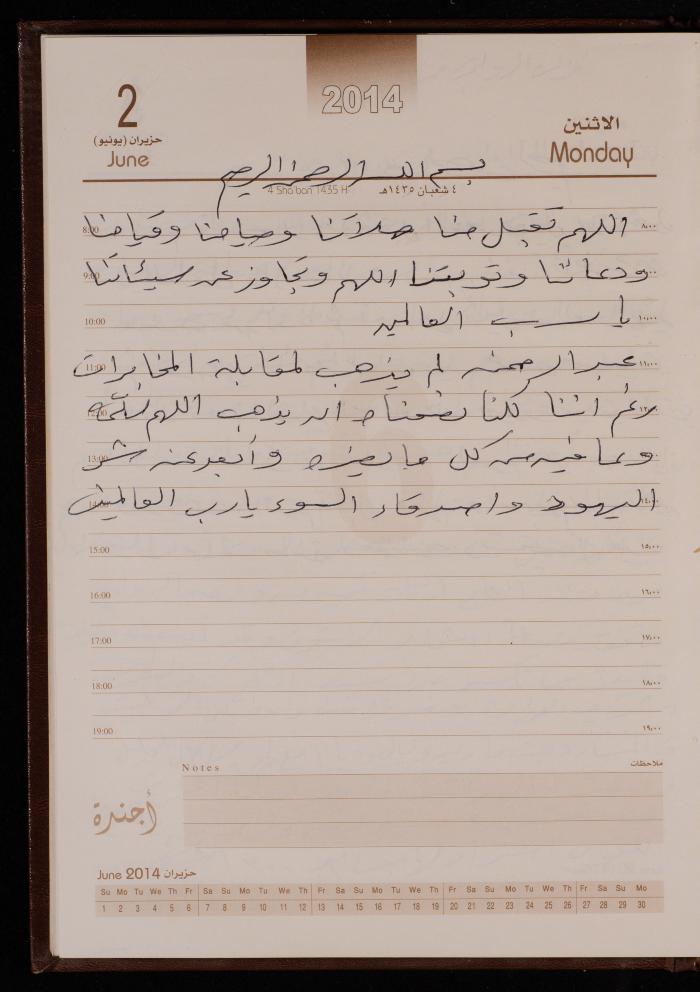 2014
2
حزيران (يونيو)
June
الاثنين
Monday
بسم الله الرحمن الرحيم
4 Sha'ban 1435 H
٤ شعبان ١٤٣٥هـ
8:00 اللهم تقبل منا صلاتنا وصيامنا وقيامنا ٨،٠٠
9:00 ودعائنا وتوبتنا اللهم وتجاوز عن سيئاتنا
10:00 يا رب العالمين ١٠،٠٠
11:00 عبد الرحمن لم يذهب لمقابلة المخابرات ١١،٠٠
رغم اننا كلنا نصحناه ان يذهب اللهم
13:00 وعافيه من كل ما يضره وأبعد عنه شر
اليهود واصدقاء السوء يا رب العالمين ١٤،٠٠
15:00 ١٥،٠٠
16:00 ١٦،٠٠
17:00 ١٧،٠٠
18:00 ١٨،٠٠
19:00 ١٩،٠٠
Notes ملاحظات
أجندة
June 2014 حزيران
Su Mo Tu We Th Fr Sa Su Mo Tu We Th Fr Sa Su Mo Tu We Th Fr Sa Su Mo Tu We Th Fr Sa Su Mo
1 2 3 4 5 6 7 8 9 10 11 12 13 14 15 16 17 18 19 20 21 22 23 24 25 26 27 28 29 30